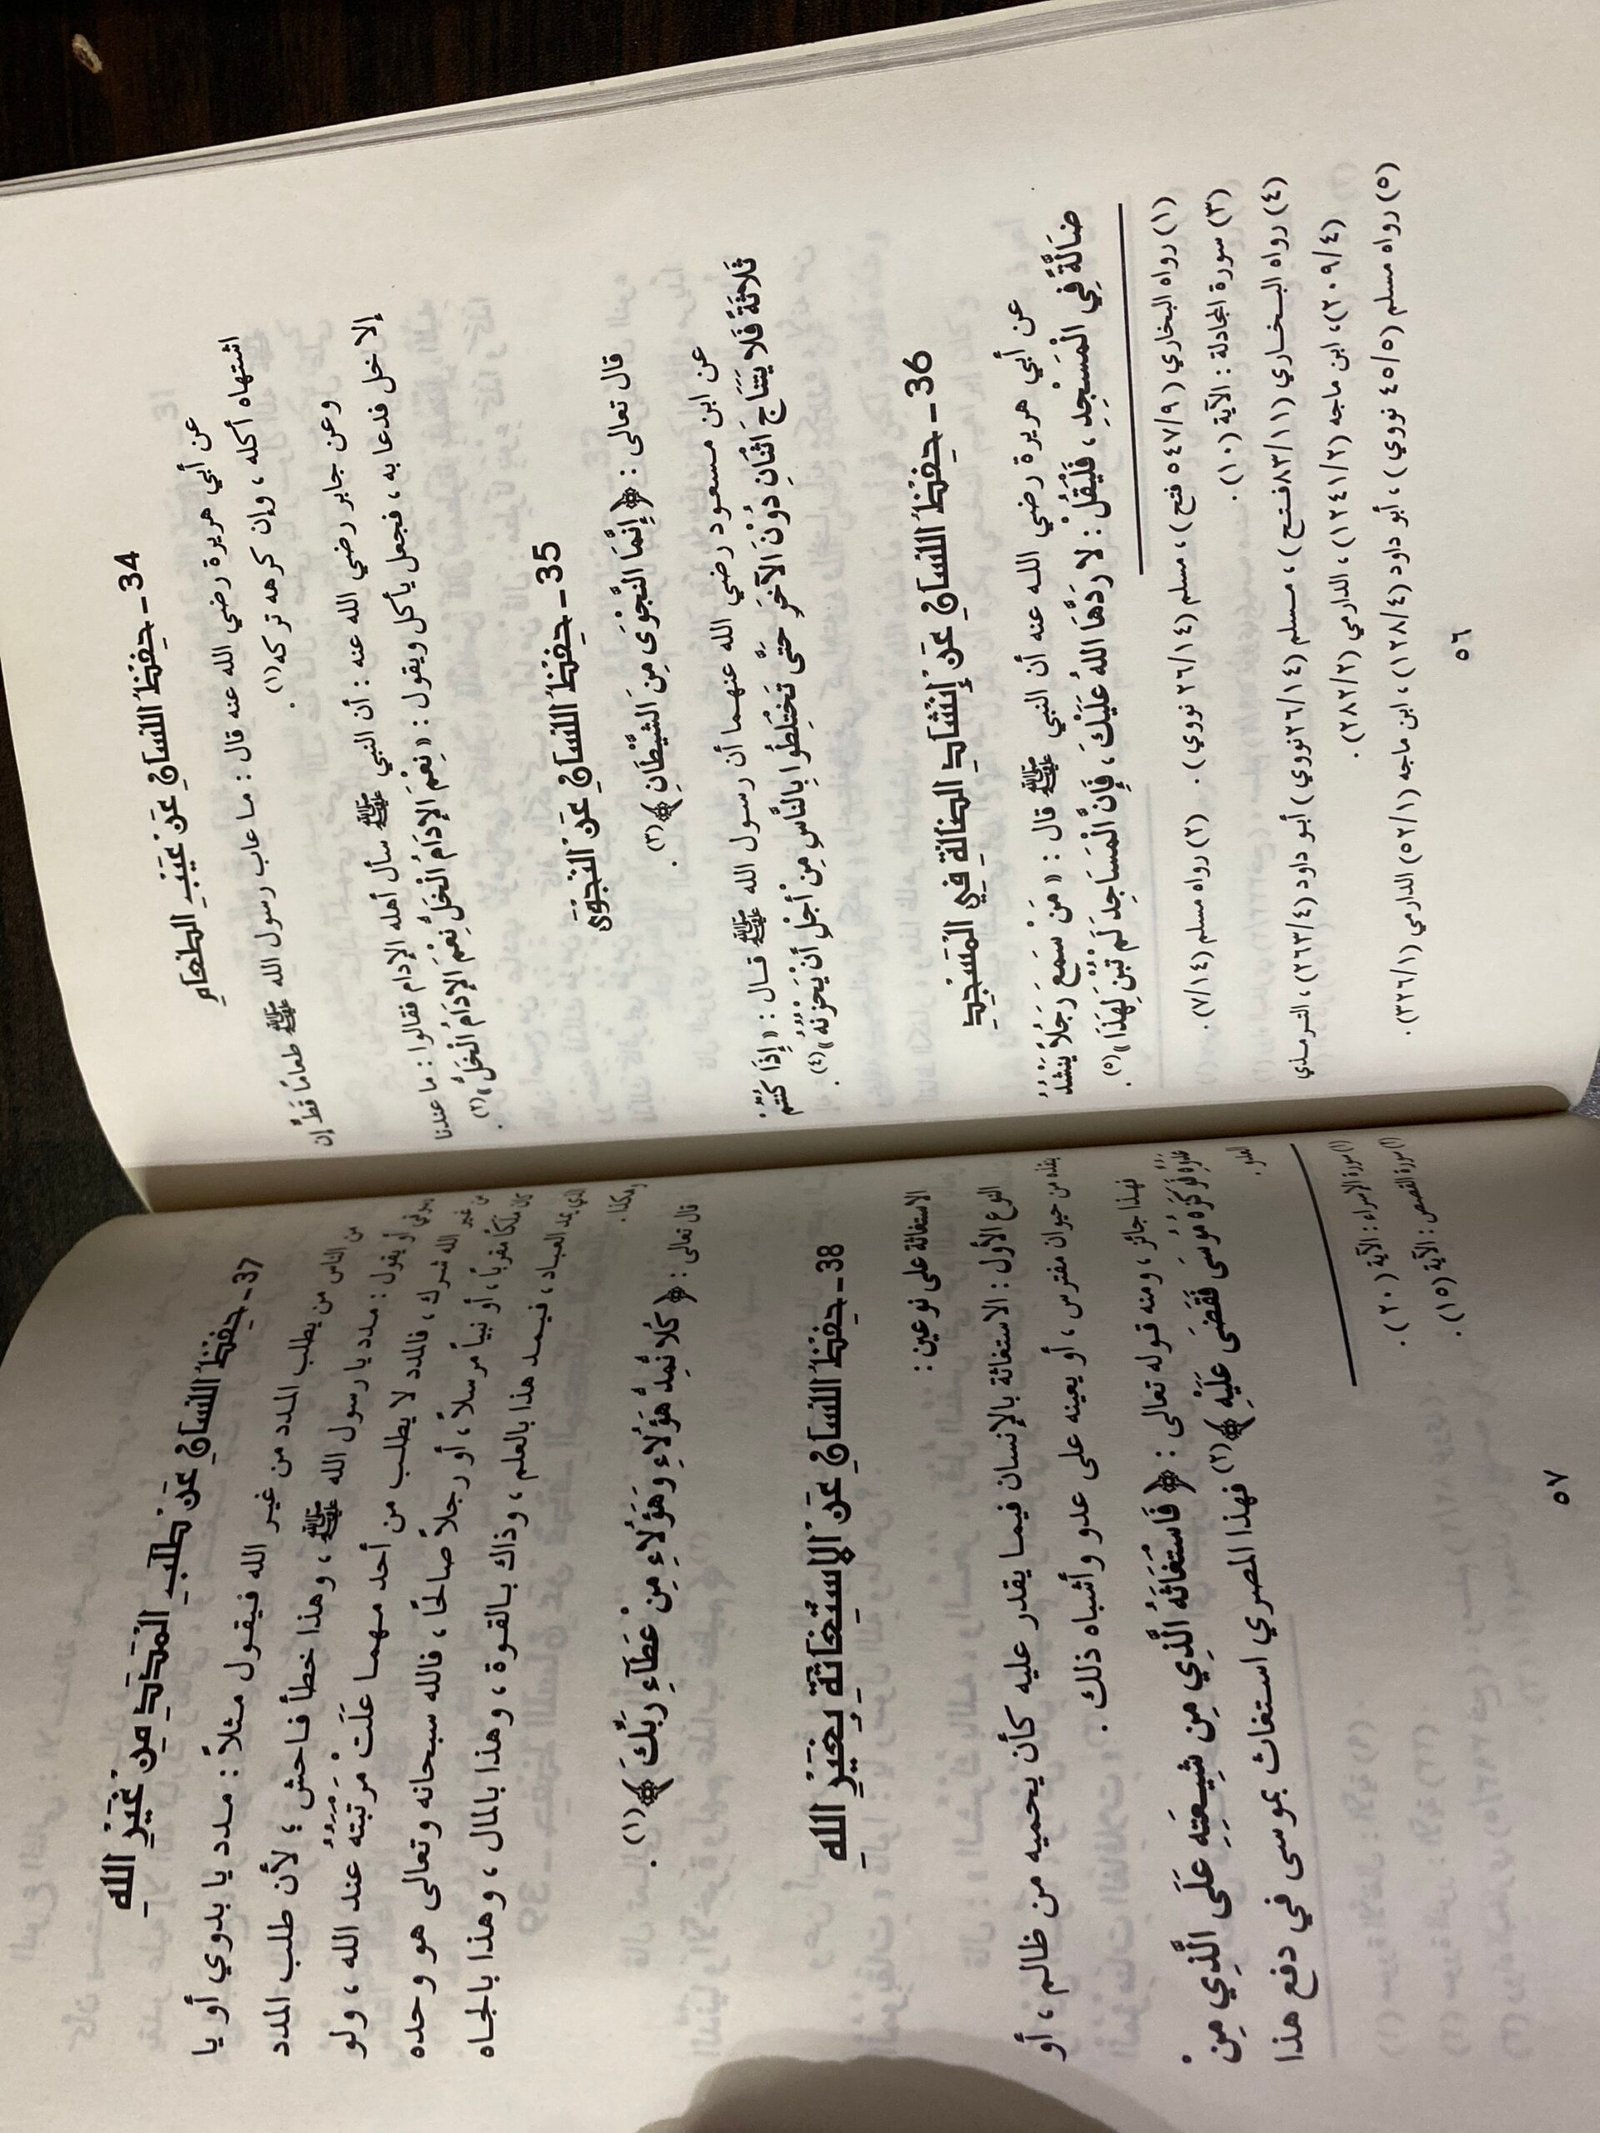 34 ـ حِفْظُ اللِّسَانِ عَنْ عَيْبِ الطَّعَامِ
عن أبي هريرة رضي الله عنه قال : ما عاب رسول الله ﷺ طعامًا قَطُّ إن
اشتهاه أكله ، وإن كرهه تركه(١) .
وعن جابر رضي الله عنه : أن النبي ﷺ سأل أهله الإدام فقالوا : ما عندنا
إلا خل فدعا به ، فجعل يأكل ويقول : « نِعْمَ الإِدَامُ الْخَلُّ نِعْمَ الإِدَامُ الْخَلُّ »(٢) .
35 ـ حِفْظُ اللِّسَانِ عَنْ النَّجْوَى
قال تعالى : ﴿ إِنَّمَا النَّجْوَى مِنَ الشَّيْطَانِ ﴾(٣) .
عن ابن مسعود رضي الله عنهما أن رسول الله ﷺ قال : « إِذَا كُنْتُمْ
ثَلَاثَةً فَلَا يَتَنَاجَ اثْنَانِ دُوْنَ الْآخَرِ حَتَّى تَخْتَلِطُوا بِالنَّاسِ مِنْ أَجْلِ أَنْ يَحْزُنَهُ »(٤) .
36 ـ حِفْظُ اللِّسَانِ عَنْ إِنْشَادِ الضَّالَّةِ فِي الْمَسْجِدِ
عن أبي هريرة رضي الله عنه أن النبي ﷺ قال : « مَنْ سَمِعَ رَجُلًا يَنْشُدُ
ضَالَّةً فِي الْمَسْجِدِ ، فَلْيَقُلْ : لا رَدَّهَا اللهُ عَلَيْكَ ، فَإِنَّ الْمَسَاجِدَ لَمْ تُبْنَ لِهَذَا »(٥) .
(١) رواه البخاري (٥٤٧/٩ فتح) ، مسلم (٢٦/١٤ نووي) . (٢) رواه مسلم (٧/١٤) .
(٣) سورة المجادلة : الآية (١٠) .
(٤) رواه البخاري (٨٣/١١فتح) ، مسلم (٢٦/١٤نووي) أبو داود (٢٦٣/٤) ، الترمذي
(٢٠٩/٤) ، ابن ماجه (١٢٤١/٢) ، الدارمي (٢٨٢/٢) .
(٥) رواه مسلم (٤٥/٥ نووي) ، أبو داود (١٢٨/٤) ، ابن ماجه (٥٢/١) الدارمي (٣٢٦/١) .
٥٦
37 ـ حِفْظُ اللِّسَانِ عَنْ طَلَبِ الْمَدَدِ مِنْ غَيْرِ اللهِ
من الناس من يطلب المدد من غير الله فيقول مثلاً : مدد يا بدوي أو يا
أو يقول : مدد يا رسول الله ﷺ ، وهذا خطأ فاحش ؛ لأن طلب المدد
من غير الله شرك ، فالمدد لا يطلب من أحد مهما عَلَتْ مَرْتَبَتُه عند الله ، ولو
كان ملَكاً مقرباً ، أو نبياً مرسلاً ، أو رجلاً صالحًا ، فالله سبحانه وتعالى هو وحده
الذي يمد العباد ، فيمد هذا بالعلم ، وذاك بالقوة ، وهذا بالمال ، وهذا بالجاه
وهكذا .
قال تعالى : ﴿ كُلًّا نُمِدُّ هَؤُلَاءِ وَهَؤُلَاءِ مِنْ عَطَاءِ رَبِّكَ ﴾(١) .
38 ـ حِفْظُ اللِّسَانِ عَنْ الاِسْتِغَاثَةِ بِغَيْرِ اللهِ
الاستغاثة على نوعين :
النوع الأول : الاستغاثة بالإنسان فيما يقدر عليه كأن يحميه من ظالم ، أو
ينقذه من حيوان مفترس ، أو يعينه على عدو وأشباه ذلك .
فهذا جائز ، ومنه قوله تعالى : ﴿ فَاسْتَغَاثَهُ الَّذِي مِن شِيعَتِهِ عَلَى الَّذِي مِنْ
عَدُوِّهِ فَوَكَزَهُ مُوسَى فَقَضَى عَلَيْهِ ﴾(٢) فهذا المصري استغاث بموسى في دفع هذا
العدو .
(١) سورة الإسراء : الآية (٢٠) .
(٢) سورة القصص : الآية (١٥) .
٥٧